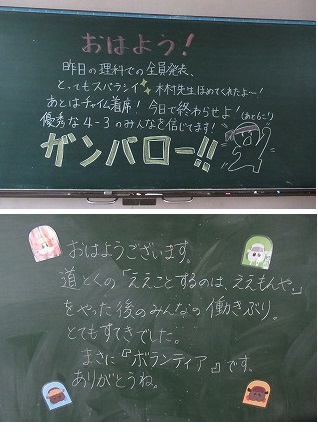 おはよう！
昨日の理科での全員発表、
とってもスバラシイ 木村先生ほめてくれたよ〜！
あとはチャイム着席！今日で終わらせよ！
優秀な4-3のみんなを信じてます！
ガンバロー!!
おはようございます。
道とくの「ええことするのは、ええもんや。」
をやった後のみんなの働きぶり。
とてもすてきでした。
まさに『ボランティア』です。
ありがとうね。